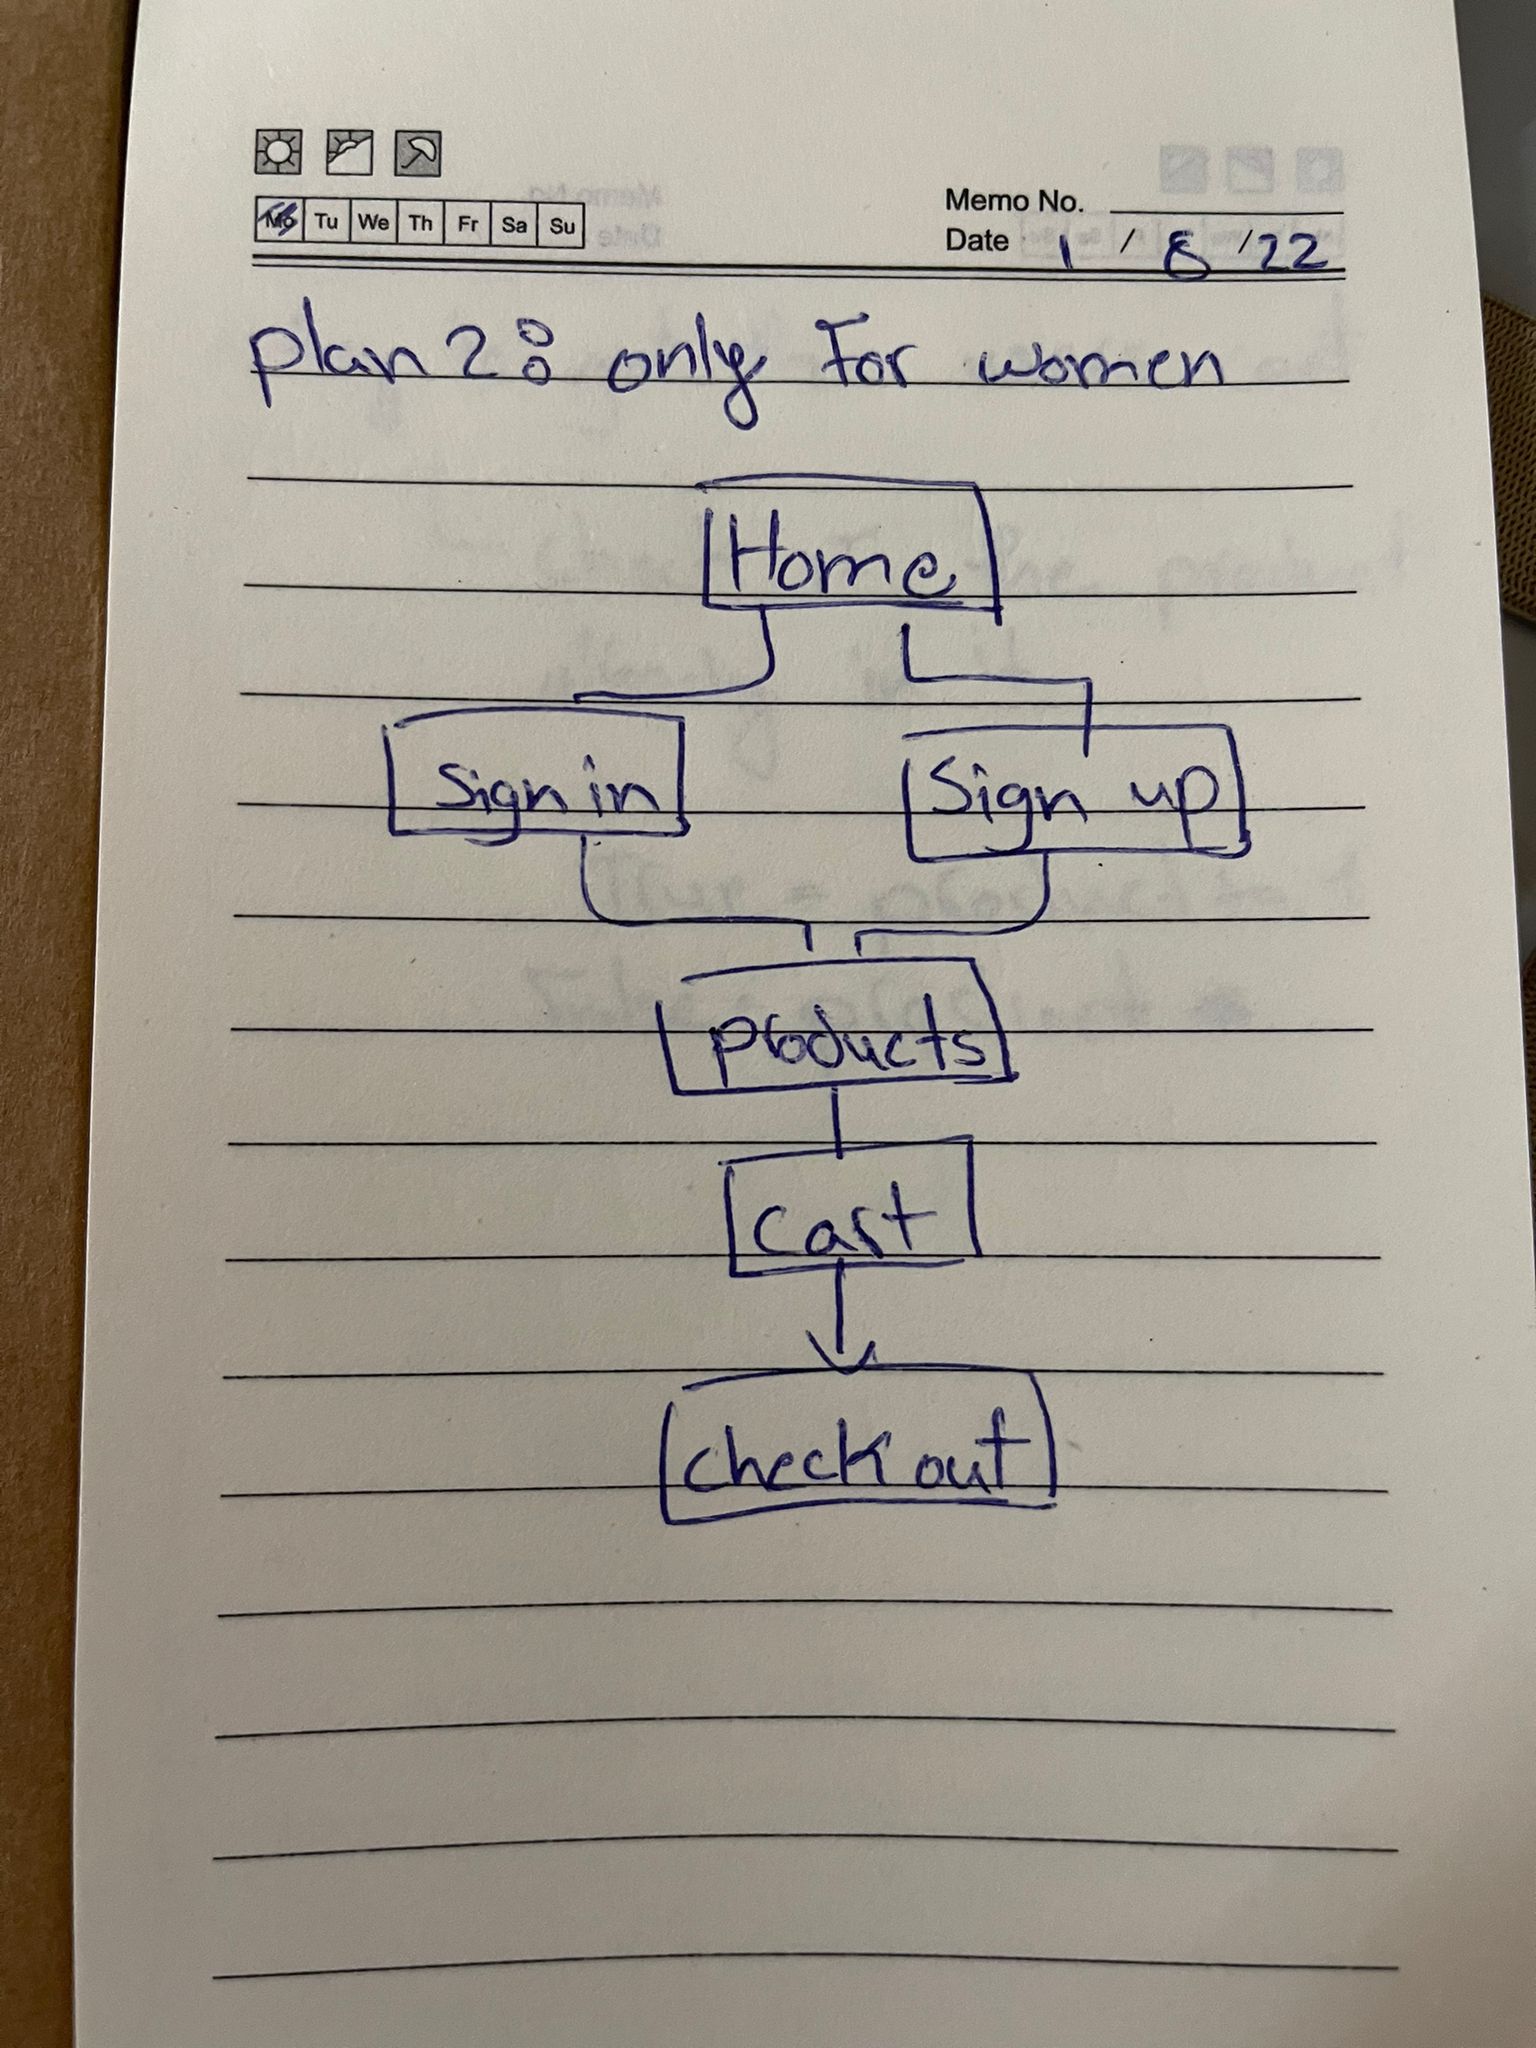 Mo Tu We Th Fr Sa Su
Memo No.
Date 1 / 8 / 22
plan 2: only For women
Home
Sign in Sign up
products
cart
check out